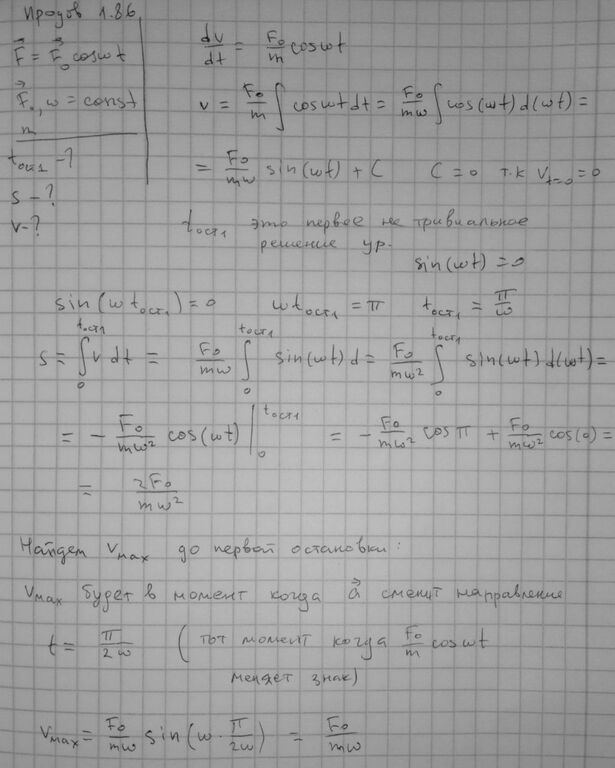 Иродов 1.86
F⃗ = F⃗₀ cosωt
F⃗₀, ω = const
m
t_ост1 - ?
s - ?
v - ?
dv/dt = F₀/m cosωt
v = F₀/m ∫ cosωt dt = F₀/mω ∫ cos(ωt) d(ωt) =
= F₀/mω sin(ωt) + C C = 0 т.к V_t=0 = 0
t_ост1 это первое не тривиальное
решение ур.
sin(ωt) = 0
sin(ωt_ост1) = 0 ωt_ост1 = π t_ост1 = π/ω
s = ∫₀^t_ост1 v dt = F₀/mω ∫₀^t_ост1 sin(ωt) d = F₀/mω² ∫₀^t_ост1 sin(ωt) d(ωt) =
= - F₀/mω² cos(ωt) |₀^t_ост1 = - F₀/mω² cos π + F₀/mω² cos(0) =
= 2F₀/mω²
Найдем V_max до первой остановки:
V_max будет в момент когда a⃗ сменит направление
t = π/2ω (тот момент когда F₀/m cosωt
меняет знак)
V_max = F₀/mω sin(ω · π/2ω) = F₀/mω